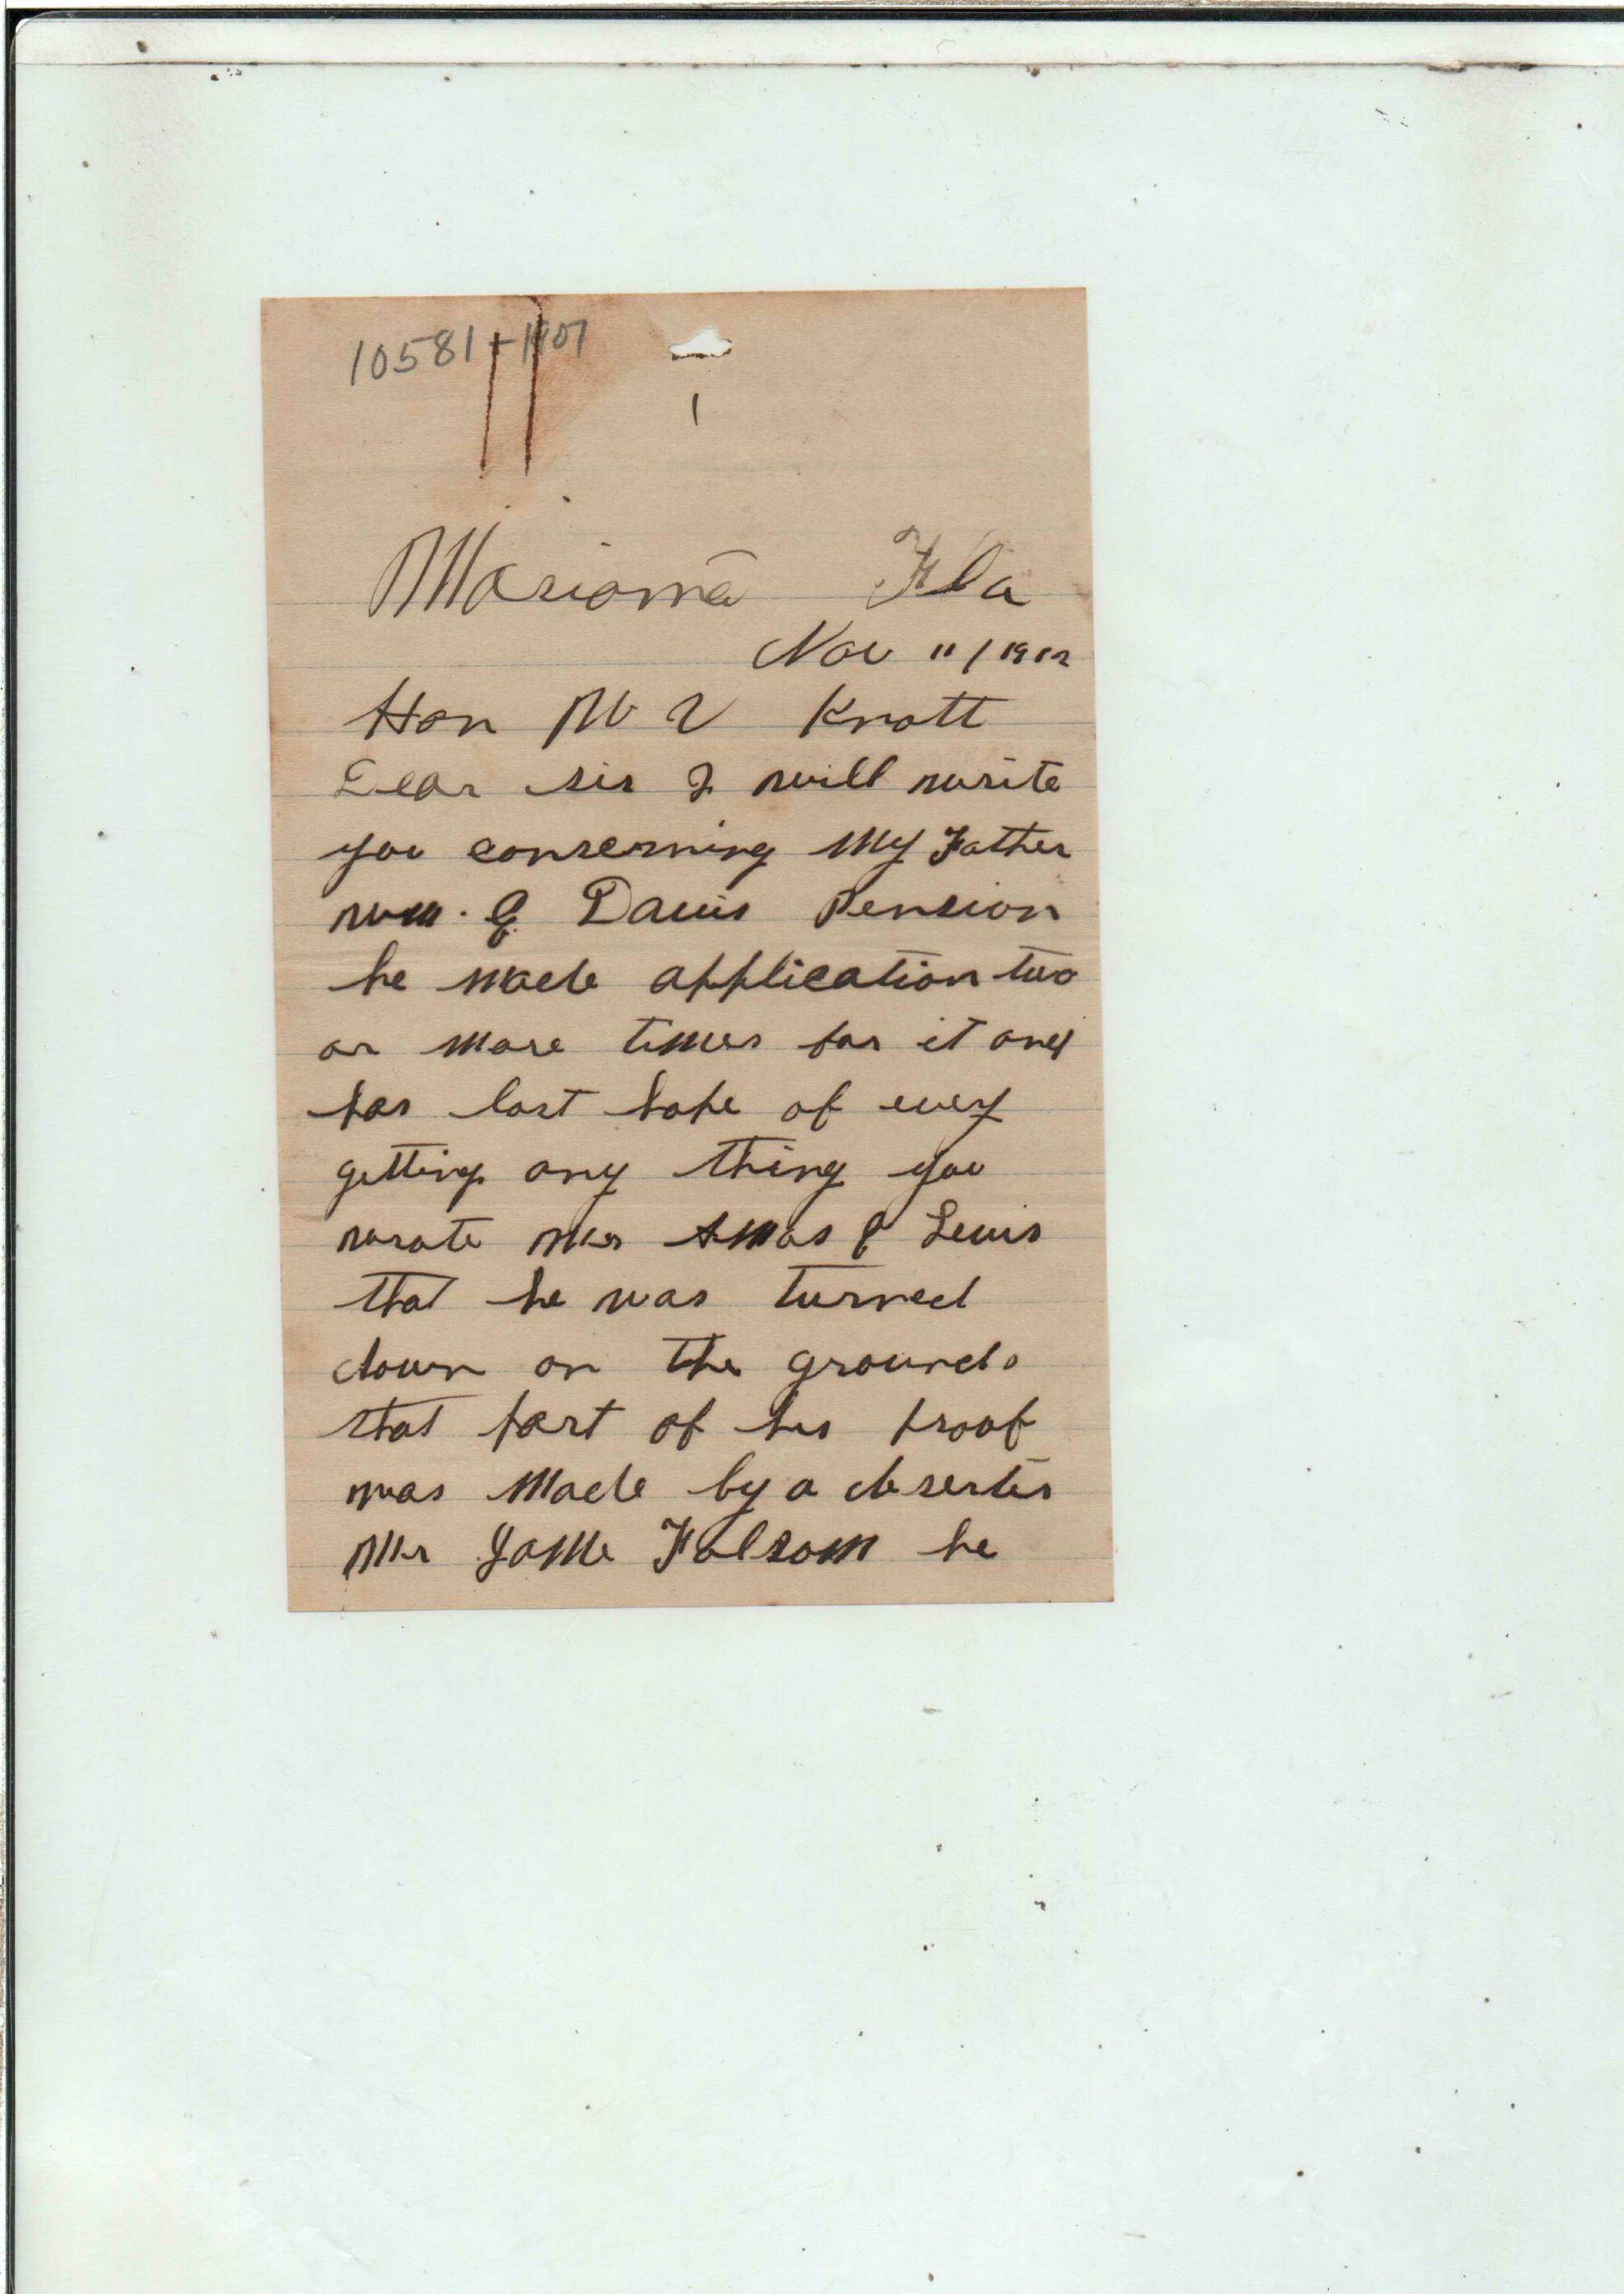 10581-1907
1
Marianna Fla
Nov 11/1912
Hon W V Knott
Dear sir I will write
you conserning My Father
wm. G Davis Pension
he made application two
or more times for it and
has lost hope of every
getting any thing you
wrote Mr Amos & Lewis
that he was turned
down on the grounds
that part of his proof
was made by a deserter
Mr Jame Folsom he